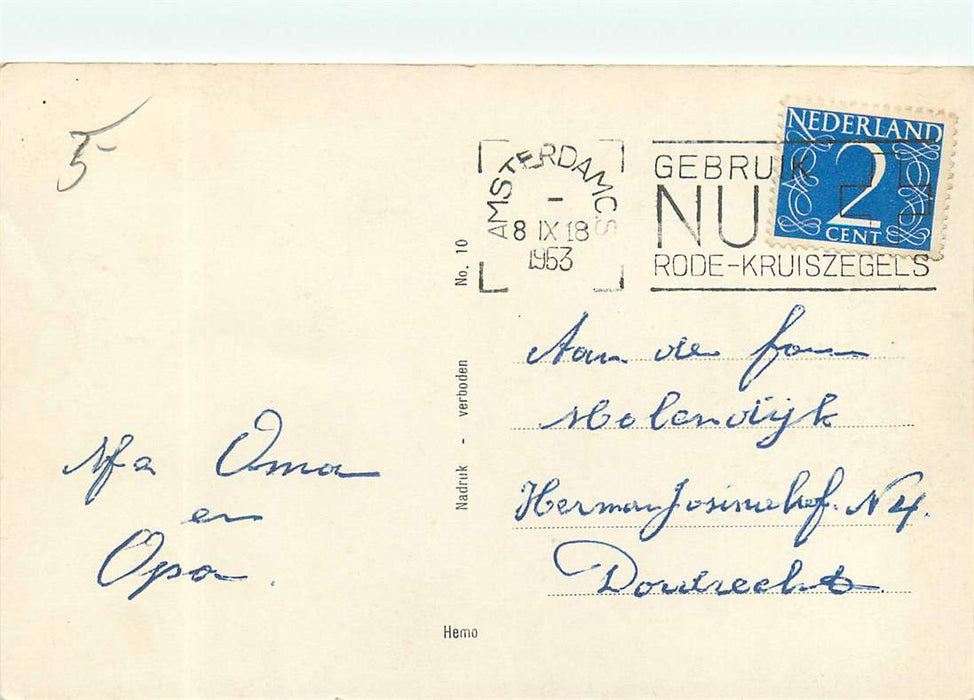 5-
AMSTERDAM C.S
8 IX 18
1953
GEBRUIK
NU
RODE-KRUISZEGELS
NEDERLAND
2
CENT
No. 10
Nadruk - verboden
Aan de fam
Molendijk
Herman Josinahof. N 4.
Dordrecht.
Afz Oma
en
Opa.
Hemo